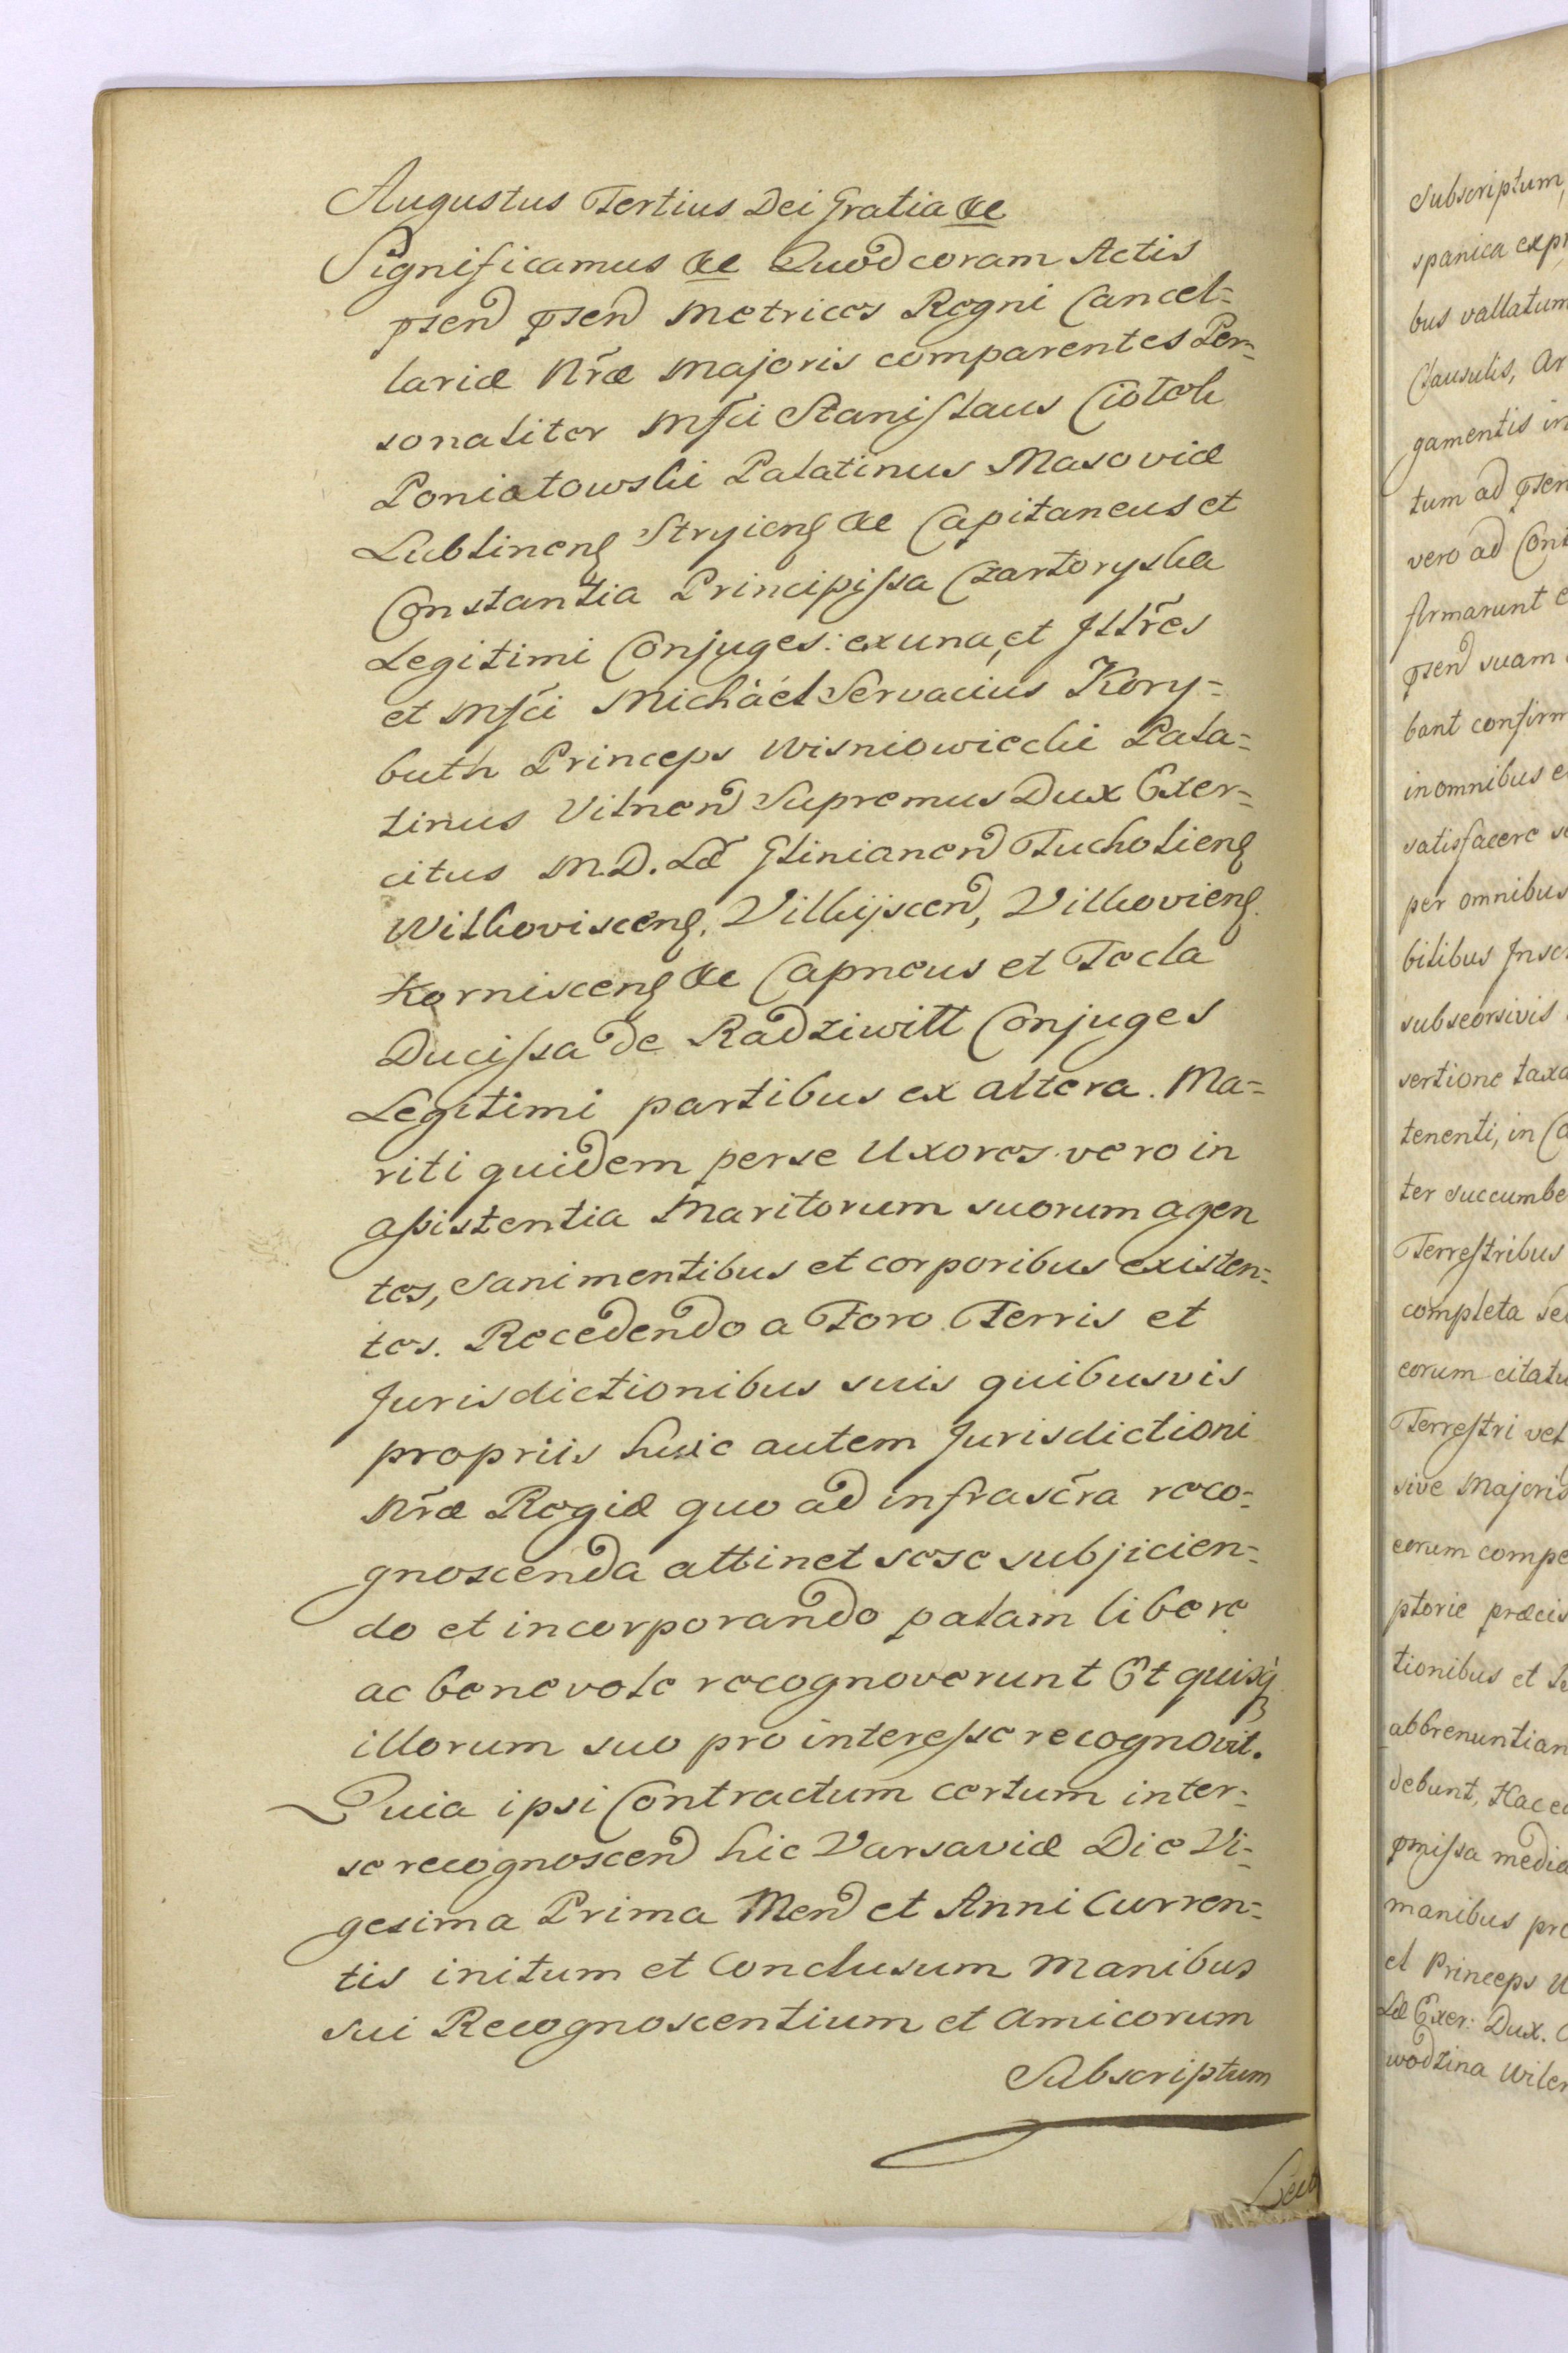 Augustus Tertius Dei Gratia &c
Significamus &c Quod coram Actis
pñsen pñsen Metrices Regni Cancel=
lariæ Nr̃æ Majoris comparentes Per=
sonaliter Mſci Staniſlaus Ciołek
Poniatowski Palatinus Masoviæ
Lublinenſ Stryienſ &c Capitaneus et
Constantia Principiſsa Czartoryska
Legitimi Conjuges: ex una, et Jllr̃es
et Mſci Michäel Servacius Kory=
buth Princeps Wisniowiecki Pala=
tinus Vilnen Supremus Dux Exer=
citus M.D.Læ Glinianen Tucholienſ
Wilkoviscenſ, Vilkijscen, Vilkovienſ
Korniscenſ &c Capneus et Tecla
Duciſsa de Radziwiłł Conjuges
Legitimi partibus ex altera. Ma=
riti quidem per se Uxores vero in
aſsistentia Maritorum suorum agen
tes, Sani mentibus et corporibus existen=
tes. Recedendo a Foro Terris et
Jurisdictionibus suis quibusvis
propriis huic autem Jurisdictioni
Nr̃æ Regiæ quo ad infrascr̃a reco=
gnoscenda attinet sese subjicien=
do et incorporando palam libere
ac benevole recognoverunt Et quisq3
illorum suo pro intereſse recognovit.
Quia ipsi Contractum certum inter=
se recognoscen hic Varsaviæ Die Vi=
gesima Prima Men et Anni Curren=
tis initum et Conclusum manibus
sui Recognoscentium et Amicorum
Subscriptum
Subscriptum,
spanica
bus vallatum
Clausulis,
gamentis
tum ad
vero ad
firmarunt
suam
bant
in omnibus
satisfacere
per omnibus
bilibus
subseorsivis
sertione
tenenti, in
ter
Terreſtribus
completa
eorum
Terreſtri vel
sive
eorum
ptorie
tionibus et
abbrenuntian
debunt,
pmiſsa
manibus
et Princeps
Læ Exer: Dux.
wodzina